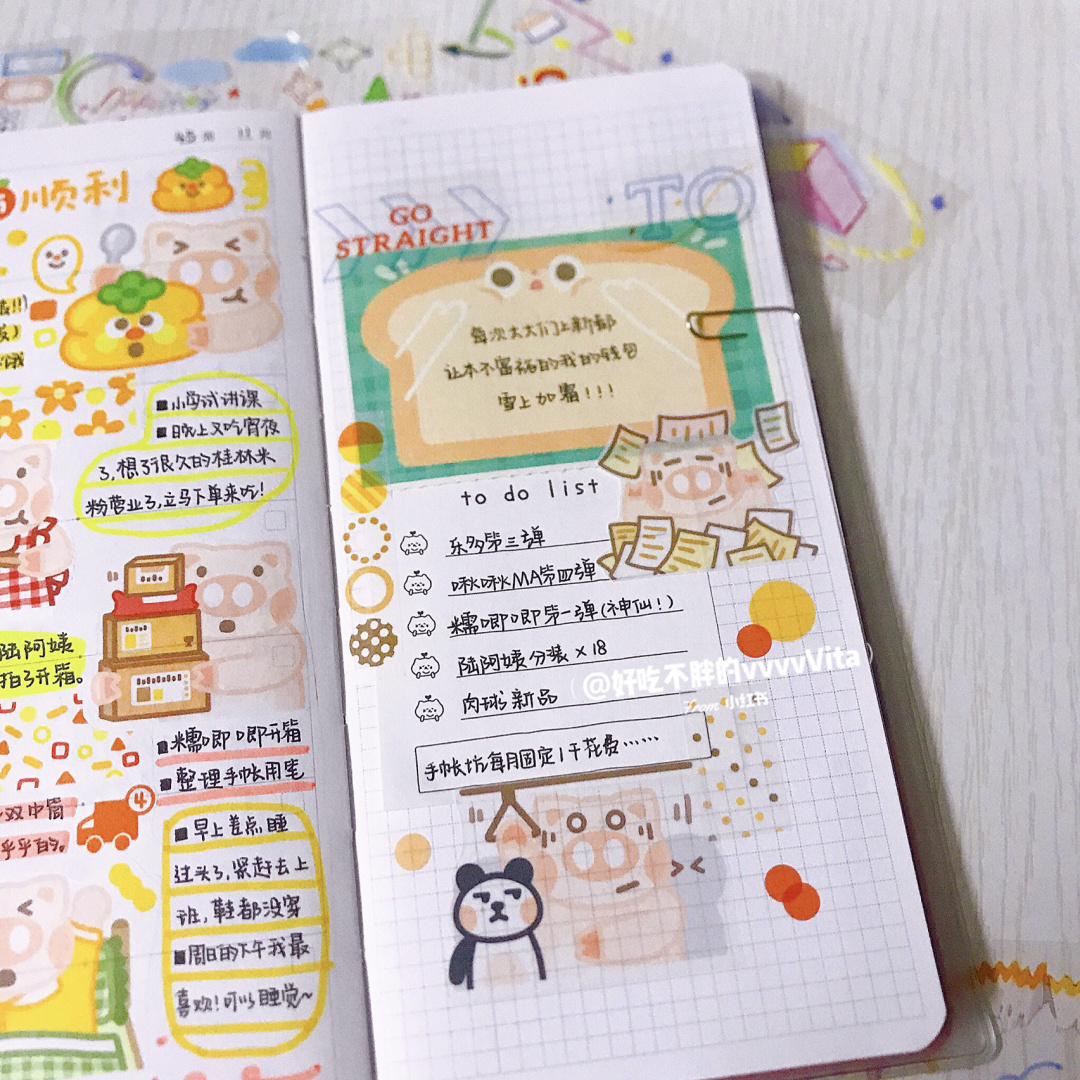 45周 11月
顺利
小学试讲课
晚上又吃宵夜
了,想了很久的桂林米
粉营业了,立马下单来吃!
陆阿姨
拍了开箱。
糯唧唧开箱
整理手帐用笔
4
双中筒
乎乎的。
早上差点睡
过头了,紧赶去上
班,鞋都没穿
周日的下午我最
喜欢!可以睡觉~
TO
GO
STRAIGHT
每次太太们上新都
让本不富裕的我的钱包
雪上加霜!!!
to do list
乐多第三弹
啾啾MA第四弹
糯唧唧第一弹(神仙!)
陆阿姨分装×18
肉球新品
手帐坑每月固定1千花费……
@好吃不胖的vvvvVita
From 小红书